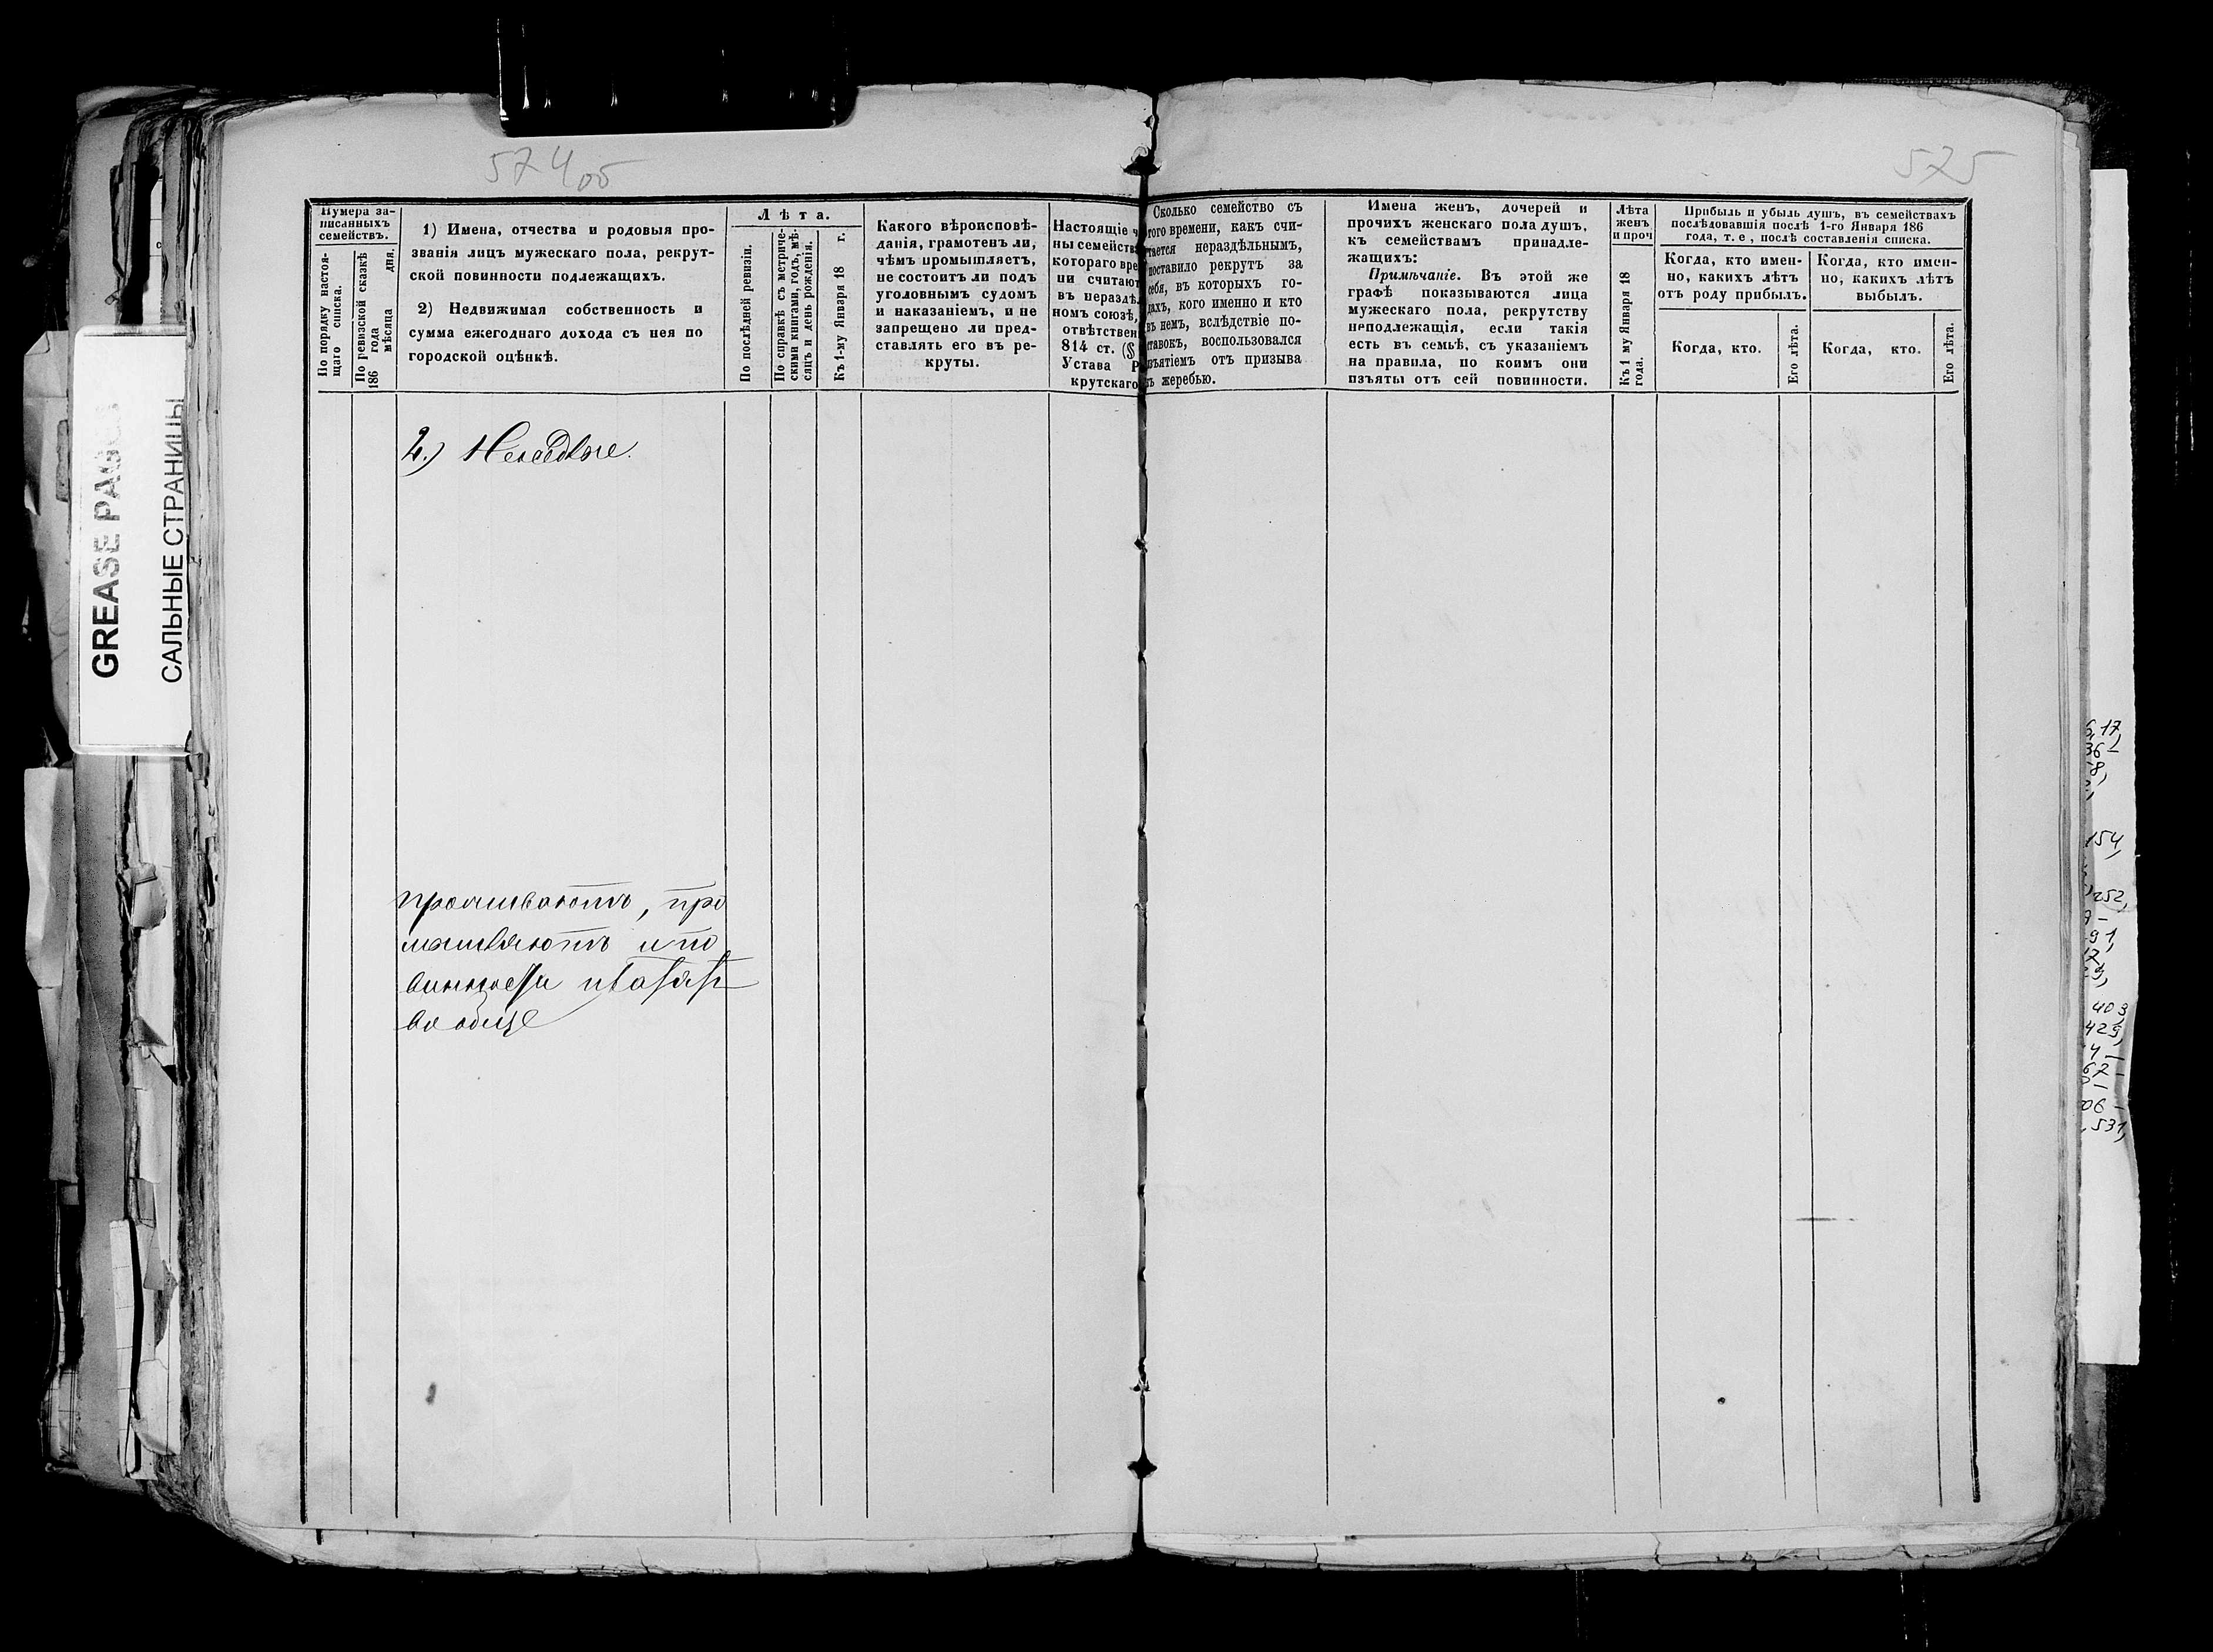 574об
575
Нумера за-
писанныхъ
семействъ.
По порядку настоя-
щаго списка.
По ревизской сказкѣ
186 года
мѣсяца дня.
1) Имена, отчества и родовыя про-
званія лицъ мужескаго пола, рекрут-
ской повинности подлежащихъ.
2) Недвижимая собственность и
сумма ежегоднаго дохода съ нея по
городской оцѣнкѣ.
Лѣта.
По послѣдней ревизіи.
По справкѣ съ метриче-
скими книгами, годъ, мѣ-
сяцъ и день рожденія.
Къ 1-му Января 18 г.
Какого вѣроисповѣ-
данія, грамотенъ ли,
чѣмъ промышляетъ,
не состоитъ ли подъ
уголовнымъ судомъ
и наказаніемъ, и не
запрещено ли пред-
ставлять его въ ре-
круты.
Настоящіе ч
ны семейств
котораго вре
ни считают
въ нераздѣ
номъ союзѣ,
отвѣтствен
814 ст. (§
Устава Р
крутскаго
Сколько семейство съ
того времени, какъ счи-
тается нераздѣльнымъ,
поставило рекрутъ за
себя, въ которыхъ го-
дахъ, кого именно и кто
въ немъ, вслѣдствіе по-
ставокъ, воспользовался
изъятіемъ отъ призыва
въ жеребью.
Имена женъ, дочерей и
прочихъ женскаго пола душъ,
къ семействамъ принадле-
жащихъ:
Примѣчаніе. Въ этой же
графѣ показываются лица
мужескаго пола, рекрутству
неподлежащія, если такія
есть въ семьѣ, съ указаніемъ
на правила, по коимъ они
изъяты отъ сей повинности.
Лѣта
женъ
и проч
Къ 1 му Января 18
года.
Прибыль и убыль душъ, въ семействахъ
послѣдовавшія послѣ 1-го Января 186
года, т. е, послѣ составленія списка.
Когда, кто имен-
но, какихъ лѣтъ
отъ роду прибылъ.
Когда, кто имен-
но, какихъ лѣтъ
выбылъ.
Когда, кто.
Его лѣта.
Когда, кто.
Его лѣта.
2.)
проживаютъ, про
мышляютъ и по
винности
вообще
GREASE PAGES
САЛЬНЫЕ СТРАНИЦЫ
154,
252,
91,
403
425,
67 -
06 -
531,